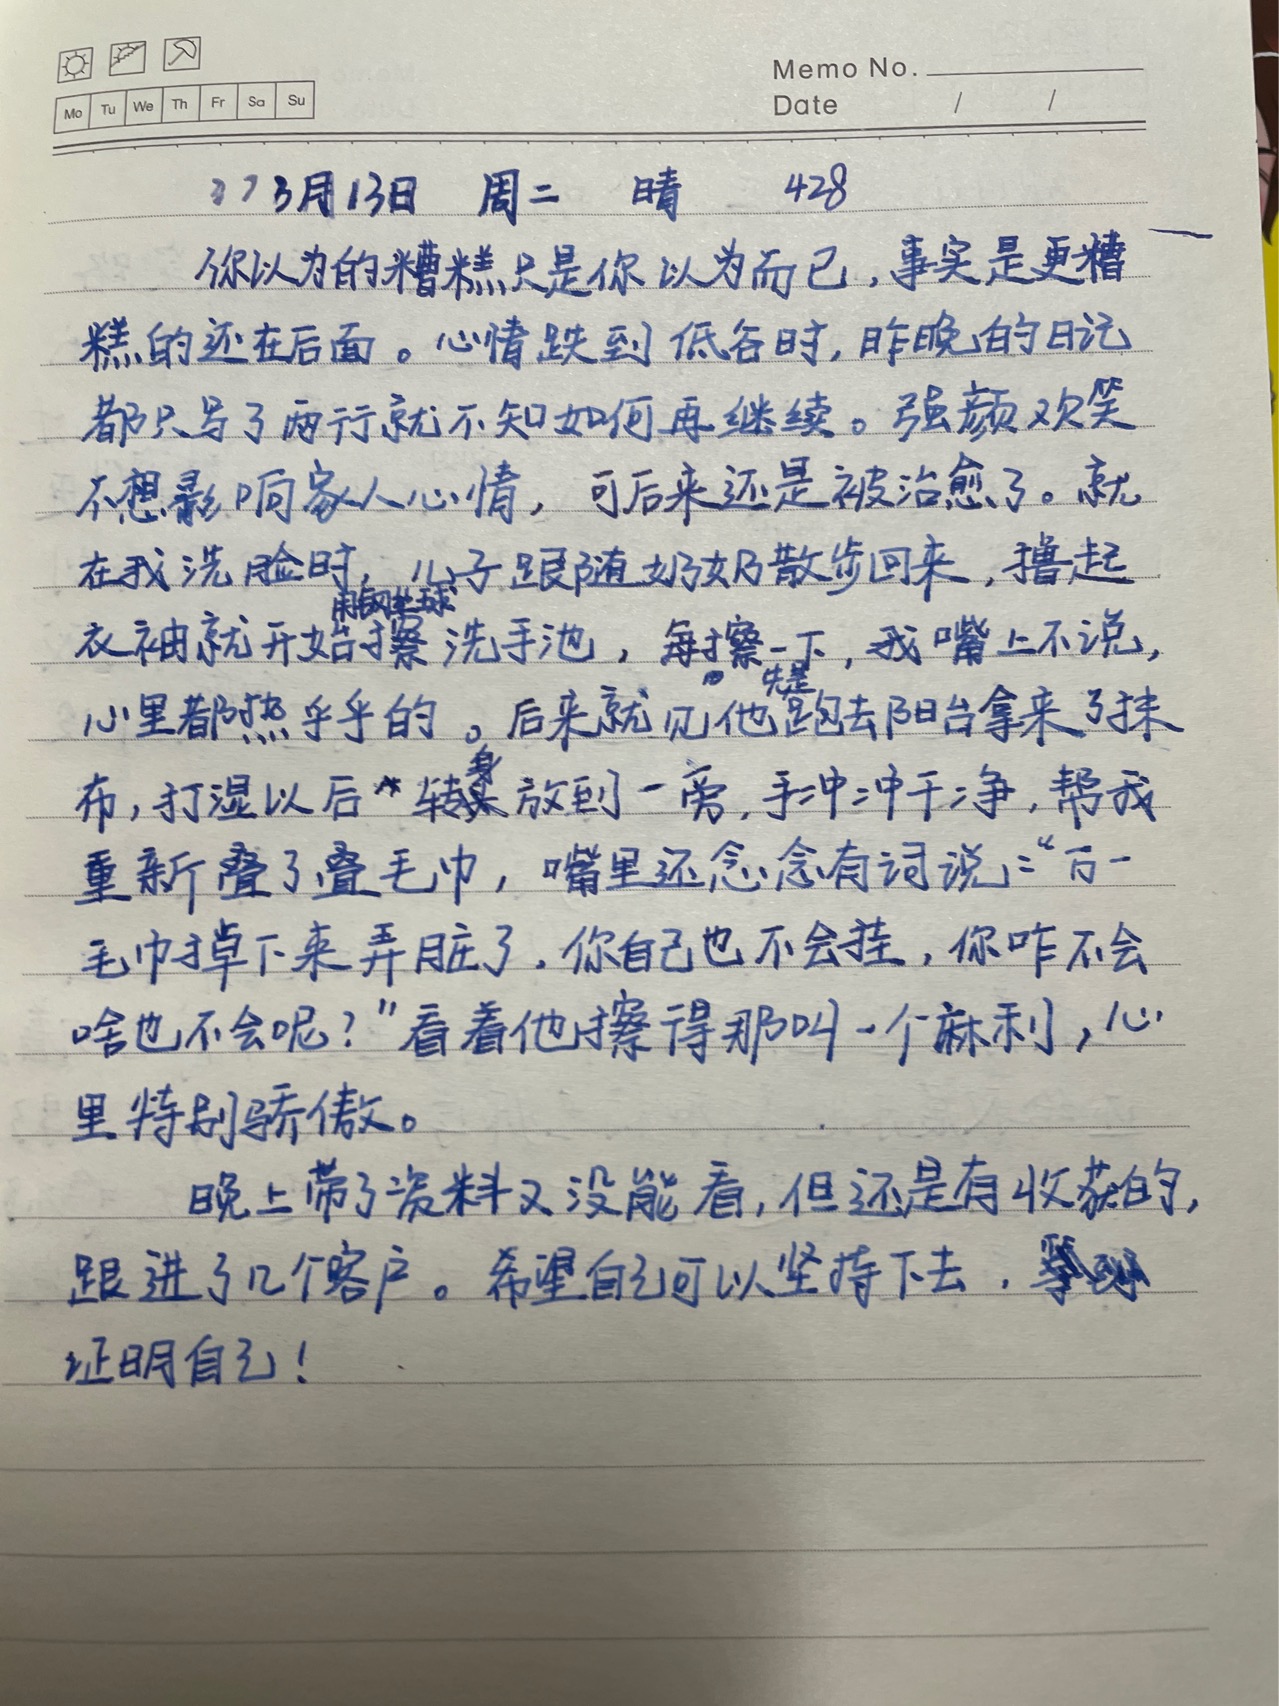 Memo No.
Mo Tu We Th Fr Sa Su
Date / /
3月13日 周二 晴 428
你以为的糟糕只是你以为而已，事实是更糟
糕的还在后面。心情跌到低谷时，昨晚的日记
都只写了两行就不知如何再继续。强颜欢笑
不想影响家人心情，可后来还是被治愈了。就
在我洗脸时，儿子跟随奶奶散步回来，撸起
用钢丝球
衣袖就开始擦洗手池，每擦一下，我嘴上不说，
先是
心里都热乎乎的。后来就见他跑去阳台拿来了抹
身
布，打湿以后转放到一旁，手冲冲干净，帮我
重新叠了叠毛巾，嘴里还念念有词说：“万一
毛巾掉下来弄脏了，你自己也不会挂，你咋不会
啥也不会呢？”看着他擦得那叫一个麻利，心
里特别骄傲。
晚上带了资料又没能看，但还是有收获的，
跟进了几个客户。希望自己可以坚持下去，
证明自己！